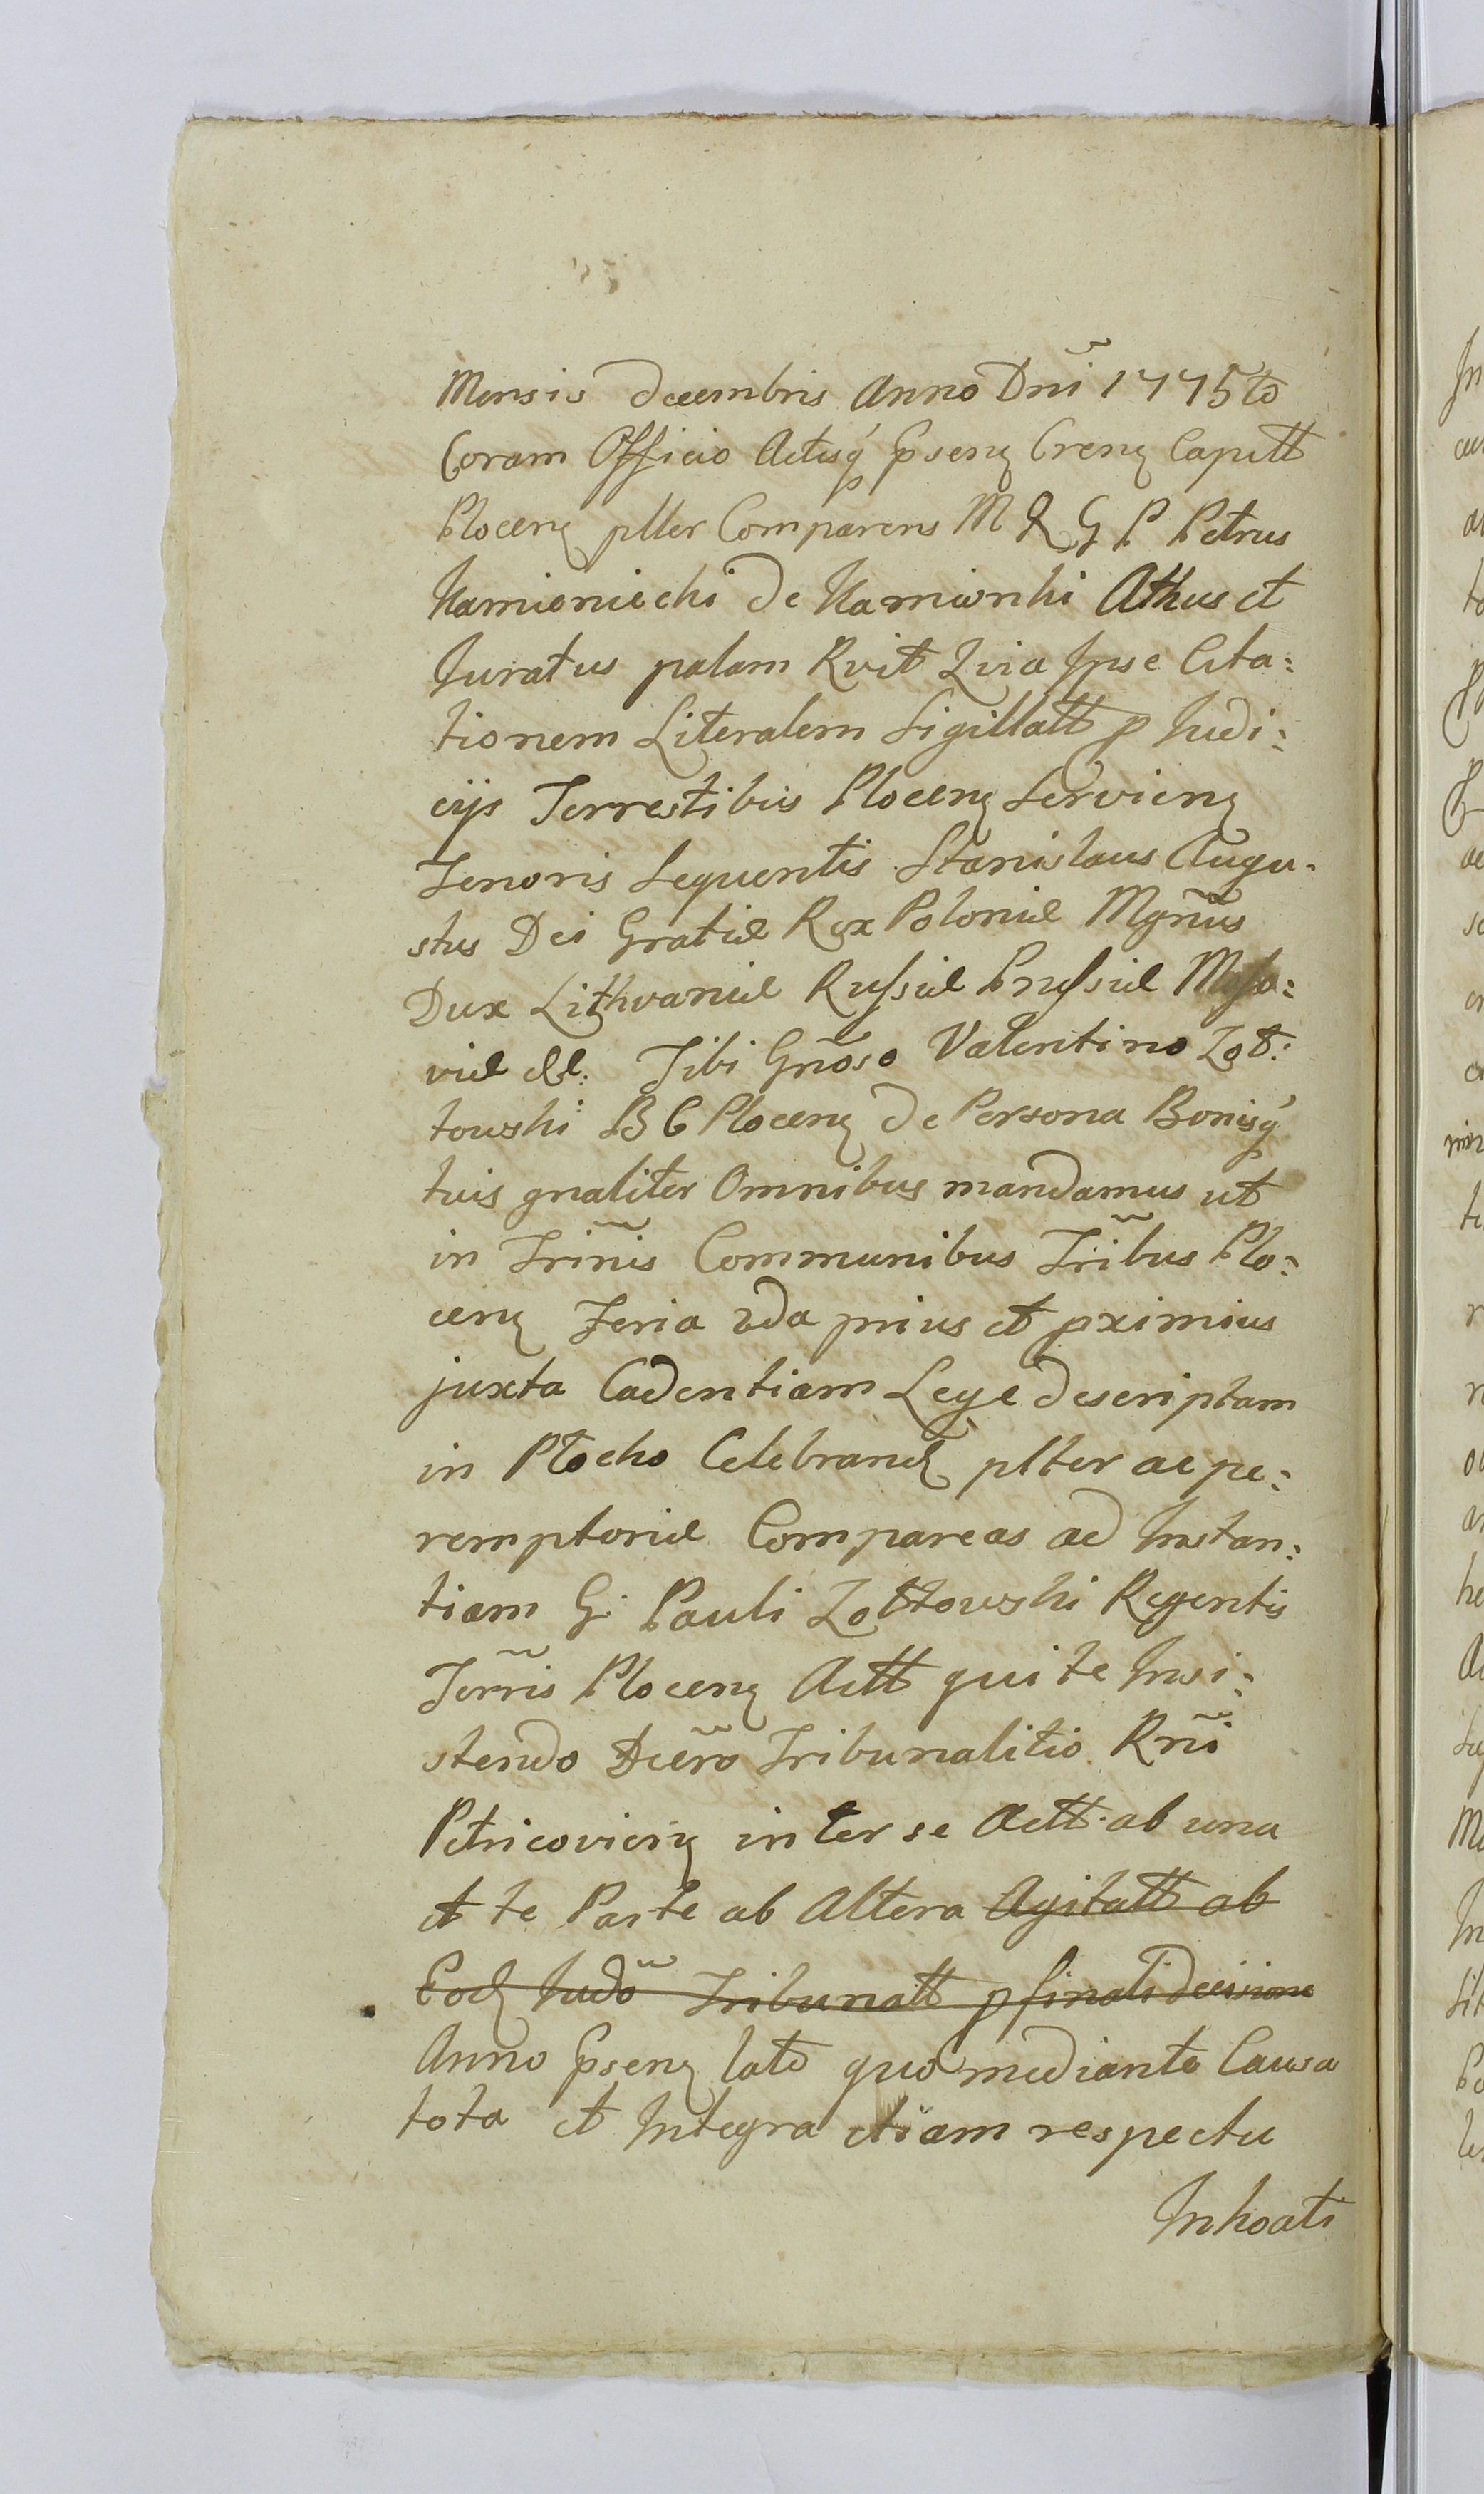 Mensis decembris Anno Dñi 1775to
Coram Officio Actisq́ Pseng Creng Capitt
Ploceng plter Comparens M & G P Petrus
Kamieniecki de Kamionki Atkus et
Juratus palam Rvit Quia Ipse Cita:
tionem Literalem Sigillatt p Judi:
cijs Terrestibus Ploceng Servieng
Tenoris Sequentis Stanislaus Augu-
stus Dei Gratiæ Rex Poloniæ Mgnus
Dux Lithvaniæ Russiæ Prussiæ Maso:
viæ &c. Tibi Gnoso Valentino Zoł:
towski B C Ploceng de Persona Bonisq́
tuis gnaliter Omnibus mandamus ut
in Trinis Communibus Tribus Plo:
ceng Feria 2da prius et pximius
juxta Cadentiam Lege descriptam
in Płocko Celebrand plter ac pe:
remptoriæ Compareas ad Instan:
tiam G. Pauli Zołtowski Regentis
Terris Ploceng Actt qui te Insi:
stendo Decro Tribunalitio Rni
Petricovieng inter se Actt. ab una
et te Parte ab Altera Agitatt ab
Eod Judo Tribunatt p finali Decisione
Anno Pseng lato quo mediante Causa
tota et Integra etiam respectu
Inhoati